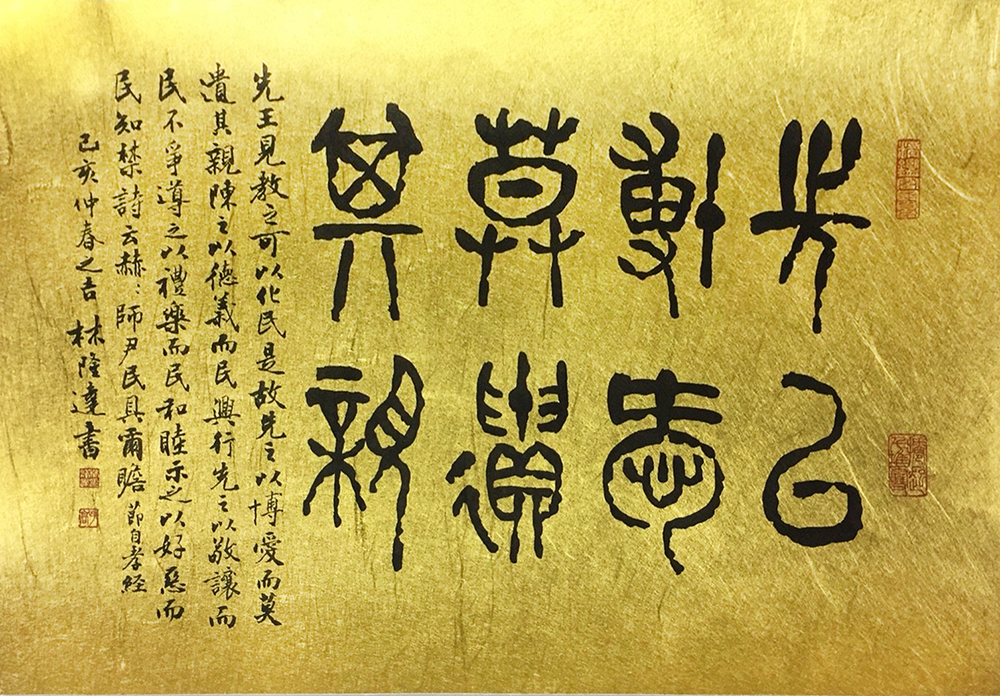 先以
博愛
莫遺
其親
先王見教之可以化民是故先之以博愛而莫
遺其親陳之以德義而民興行先之以敬讓而
民不爭導之以禮樂而民和睦示之以好惡而
民知禁詩云赫︰師尹民具爾瞻 節自孝経
己亥仲春之吉 林隆達書